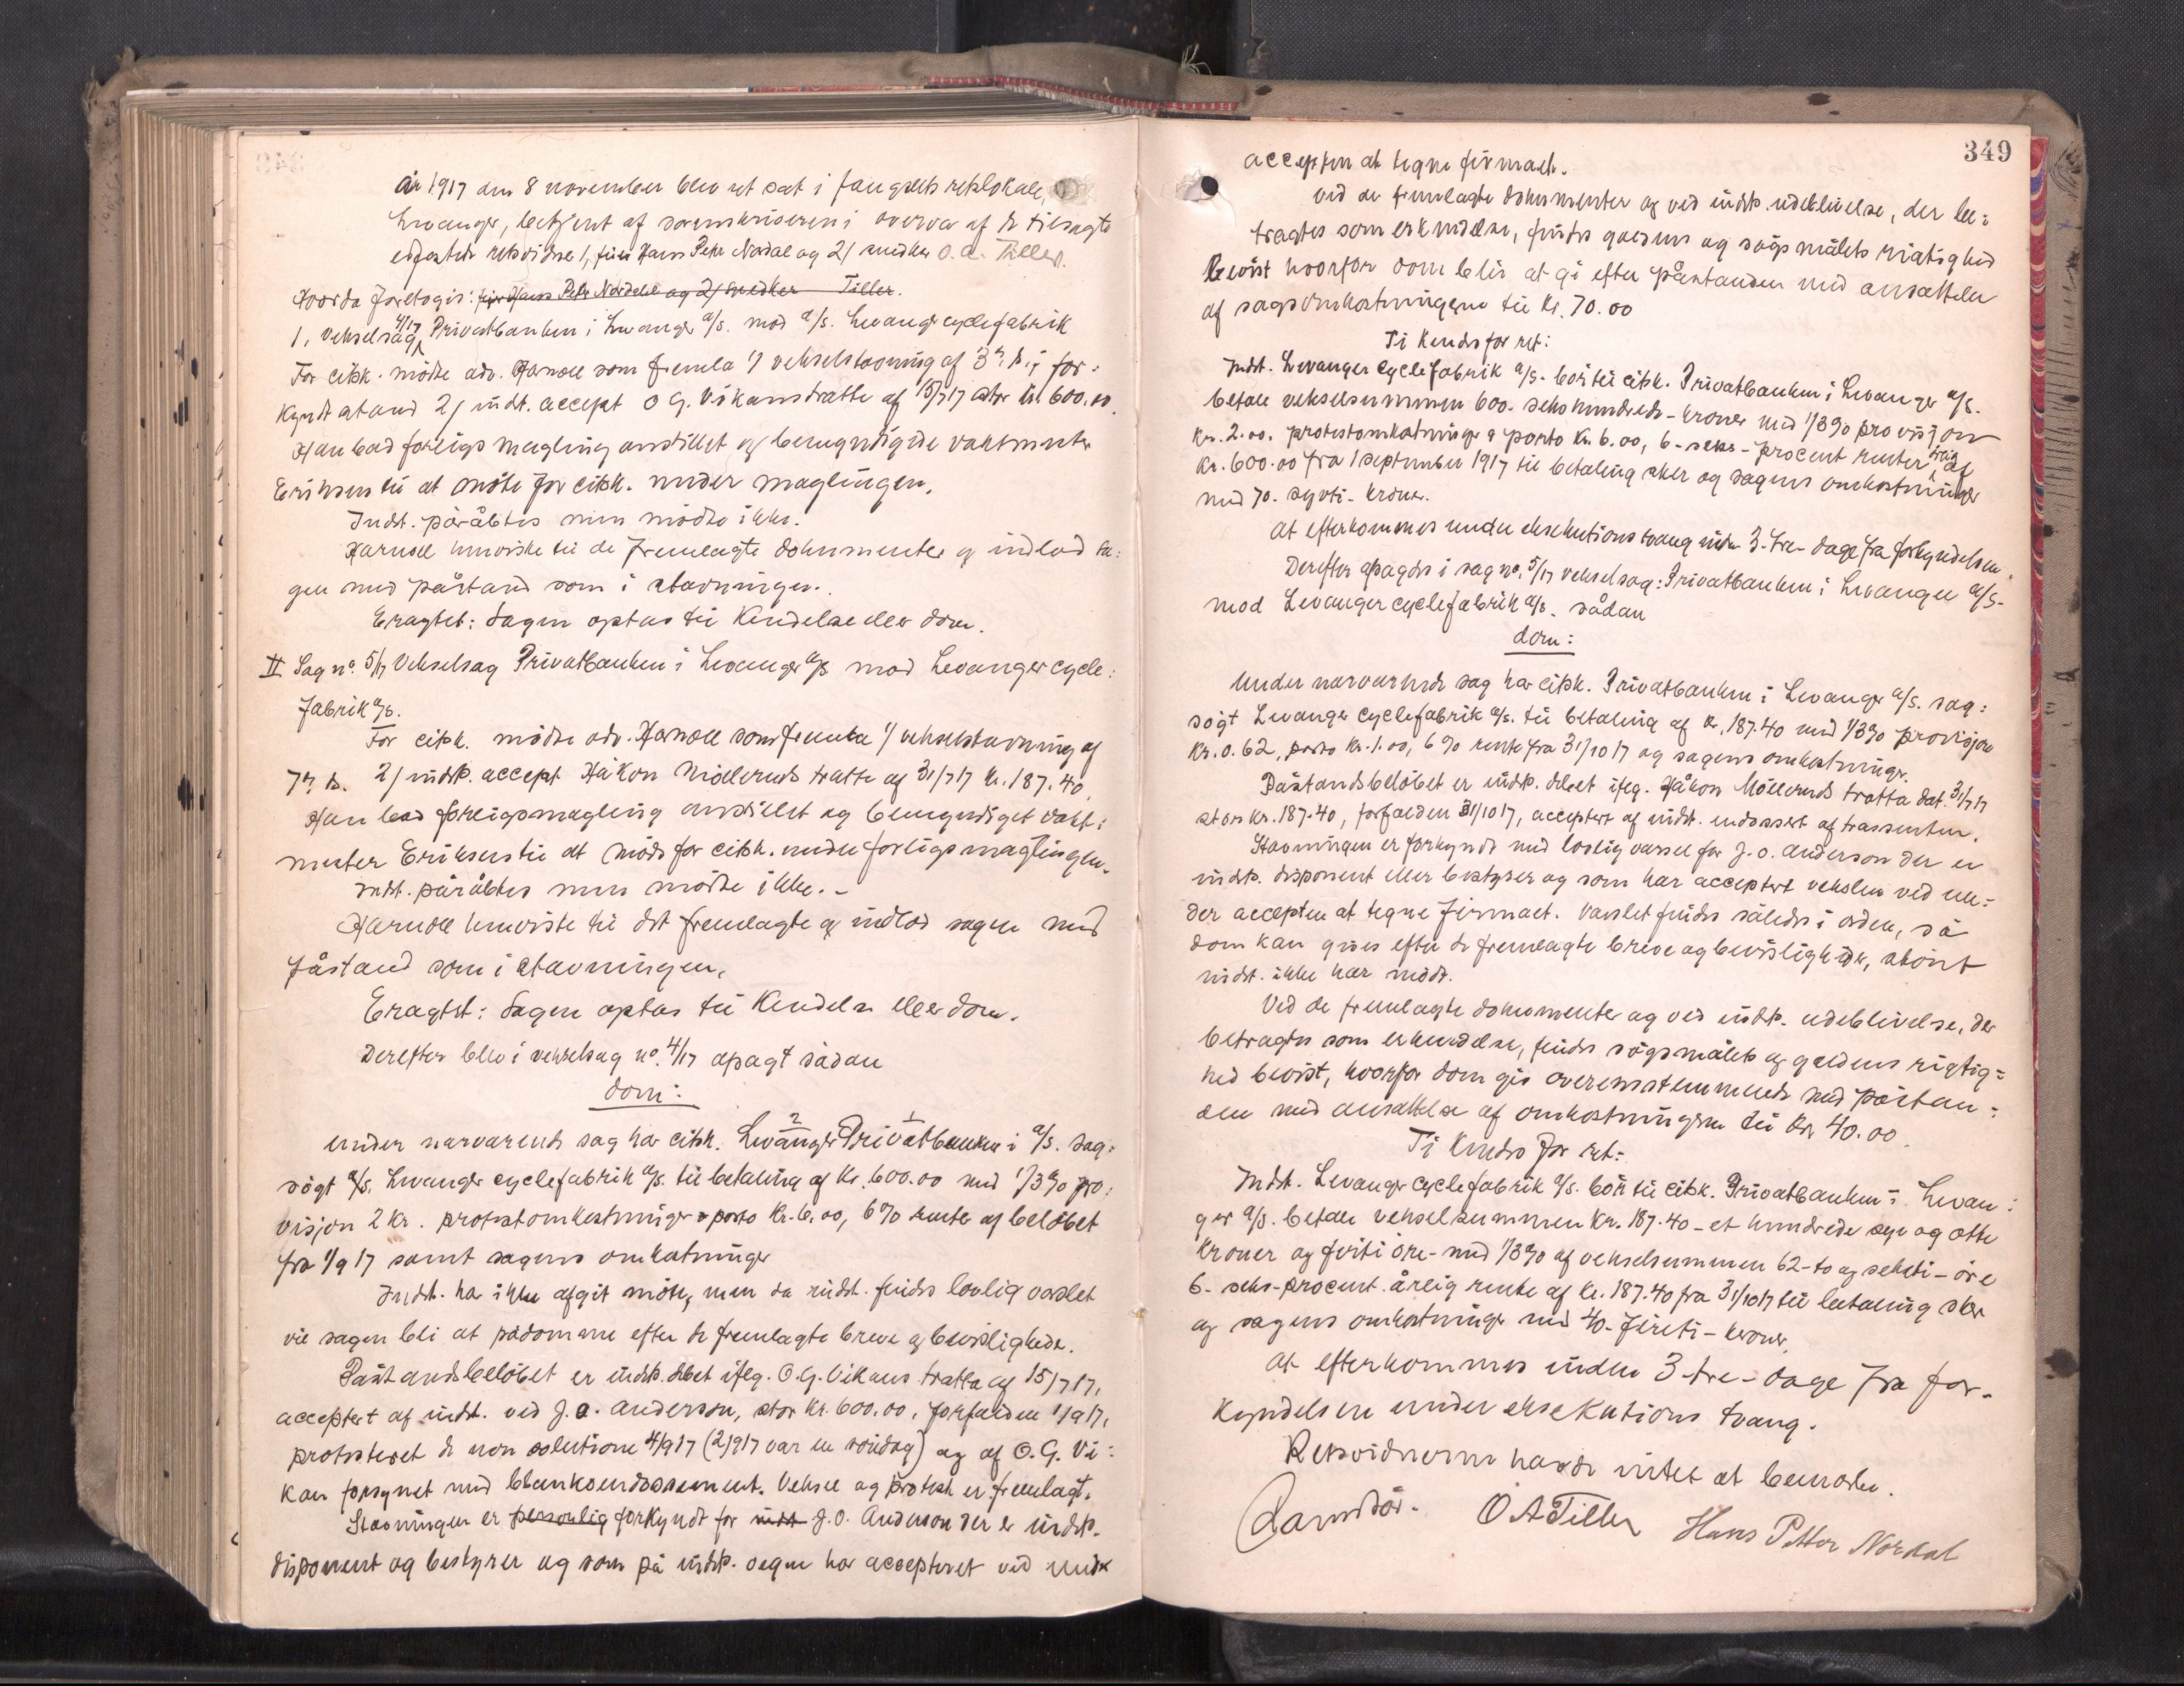 År 1917 den 8 november blev ret sat i fængslets retslokale,
Levanger, betjent af sorenskriveren i overvær af de tilsagte
edfæstede retsvidner 1, Hans Peter Nordal og 2/ snedker O. A. Tiller.
Hvorda foretoges: Hans Peter Nordal og 2/ snedker Tiller.
1, Vekselsag 4/17 Privatbanken i Levanger a/s. mod a/s. Levanger cyclefabrik
For citsk. mødte adv. Harvoll som fremla 1/ vekselstævning af 3 d. m. i for-
kyndt stand 2/ indst. accept O G. Vikans tratte af 15/7 17 stor kr. 600.00.
Han bad forligsmægling anstillet og bemyndigede vaktmester
Eriksen til at møte for citsk. under mæglingen.
Indst. påråbtes men mødte ikke.
Harvoll henviste til de fremlagte dokumenter og indlod sa-
gen med påstand som i stævningen.
Eragtet: Sagen optas til Kendelse eller dom.
II Sag no. 5/17 Vekselsag Privatbanken i Levanger a/s mod Levanger cycle-
fabrik a/s.
For citsk. mødte adv. Harvoll som fremla 1/ vekselstævning af
2/ indst. accept Håkon Møllerens tratte af 31/7 17 kr. 187.40
Han bad forligsmægling anstillet og bemyndiget vakt-
mester Eriksens til at møde for citsk. under forligsmæglingen.
Indst. påråbtes men mødte ikke. -
Harvoll henviste til det fremlagte og indlod sagen med
påstand som i stævningen.
Eragtet: Sagen optas til Kendelse eller dom.
Derefter blev i vekselsag no. 4/17 afsagt sådan
dom:
Under nærværende sag har citsk. 2 Levanger 1 Privatbanken i a/s. sag-
søgt a/s. Levanger cyclefabrik a/s. til betaling af Kr. 600.00 med 1/3 % pro-
visjon 2 kr. protestomkostninger & porto Kr. 6.00, 6 % renter af beløbet
fra 1/9 17 samt sagens omkostninger
Indst. har ikke afgit møte, men da indst. findes lovlig varslet
vil sagen bli at pådømme efter de fremlagte breve og bevisligheder.
Påstandsbeløbet er indst. debet ifølg. O. G. Vikans tratta af 15/7 17,
acceptert af indst. ved J. O. Anderson, stor Kr. 600.00, forfalden 1/9 17,
protesteret de non solutione 4/9 17 (2/9 17 var en søndag) og af O. G. Vi-
kan forsynet med blankoendossement. Veksel og protest er fremlagt.
Stævningen er personlig forkyndt for indst J. O. Anderson der er indst.
disponent og bestyrer og som på indst. vegne har accepteret ved under
349
accepten at tegne firmaet.
Ved de fremlagte dokumenter og ved indst. udeblivelse, der be-
tragtes som erkendelse, findes gældens og søgsmålets rigtighed
bevist hvorfor dom blir at gi efter påstanden med ansættelse
af sagsomkostningerne til kr. 70.00
Ti Kendes for ret:
Indst. Levanger Cyclefabrik a/s. bør til citsk. Privatbanken i Levanger a/s.
betale vekselsummen 600. sekshundrede - kroner med 1/3 % provisjon
Kr. 2.00. protestomkostninger & porto kr. 6.00, 6 - seks - procent renter årlig af
kr. 600.00 fra 1 september 1917 til betaling sker og sagens omkostninger
med 70. sytti - kroner.
At efterkommes under eksekutionstvang inden 3. tre - dage fra forkyndelsen.
Derefter afsagdes i sag no. 5/17 vekselsag: Privatbanken i Levanger a/s -
mod Levanger cyclefabrik a/s. sådan
dom:
Under nærværende sag har citsk. Privatbanken i Levanger a/s. sag-
søgt Levanger Cyclefabrik a/s. til betaling af kr. 187.40 med 1/3 % provisjon
Kr. 0.62, porto kr. 1.00, 6 % rente fra 31/10 17 og sagens omkostninger.
Påstandsbeløbet er indst. debet ifølg. Håkon Møllerens tratta dat. 31/7 17
stor kr. 187.40, forfalden 31/10 17, acceptert af indst. endossert af trassenten.
Stævningen er forkyndt med lovlig varsel for J. O. Anderson der er
indst. disponent eller bestyrer og som har acceptert vekslen ved un-
der accepten at tegne firmaet. Varslet findes således i orden, så
dom kan gives efter de fremlagte breve og bevisligheder, skønt
indst. ikke har mødt.
Ved de fremlagte dokumenter og ved indst. udeblivelse, der
betragtes som erkendelse, findes søgsmålets og gældens rigtig-
hed bevist, hvorfor dom gis overensstemmende med påstan-
den med ansættelse af omkostningerne til kr. 40.00.
Ti Kendes for ret:
Indst. Levanger Cyclefabrik a/s. bør til citsk. Privatbanken i Levan-
ger a/s. betale vekselsummen kr. 187.40 - et hundrede syv og otti
kroner og firti øre - med 1/3 % af vekselsummen 62 - to og seksti - øre
6 - seks - procent årlig rente af kr. 187.40 fra 31/10 17 til betaling sker
og sagens omkostninger med 40 - firti - kroner.
At efterkommes inden 3 - tre - dage fra for-
kyndelsen under eksekutions tvang.
Retsvidnerne havde intet at bemærke.
O A Tiller Hans Petter Nordal